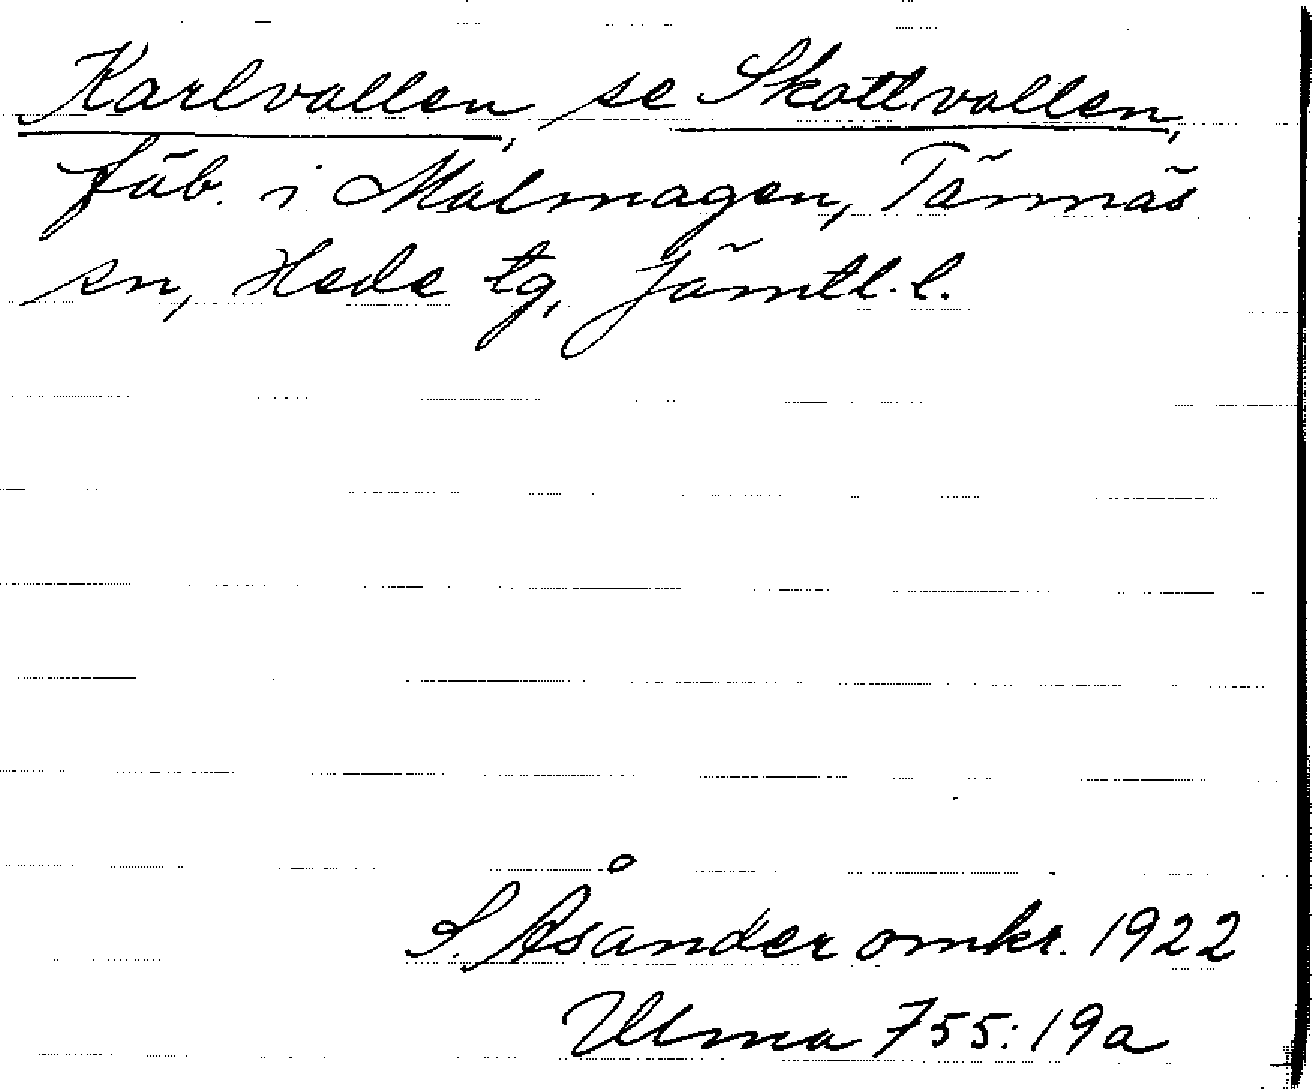 Karlvallen, se Skottvallen,
fäb. i Malmagen, Tännäs
sn, Hede tg, Jämtl. l.
S. Åsander omkr. 1922
Ulma 755:19a